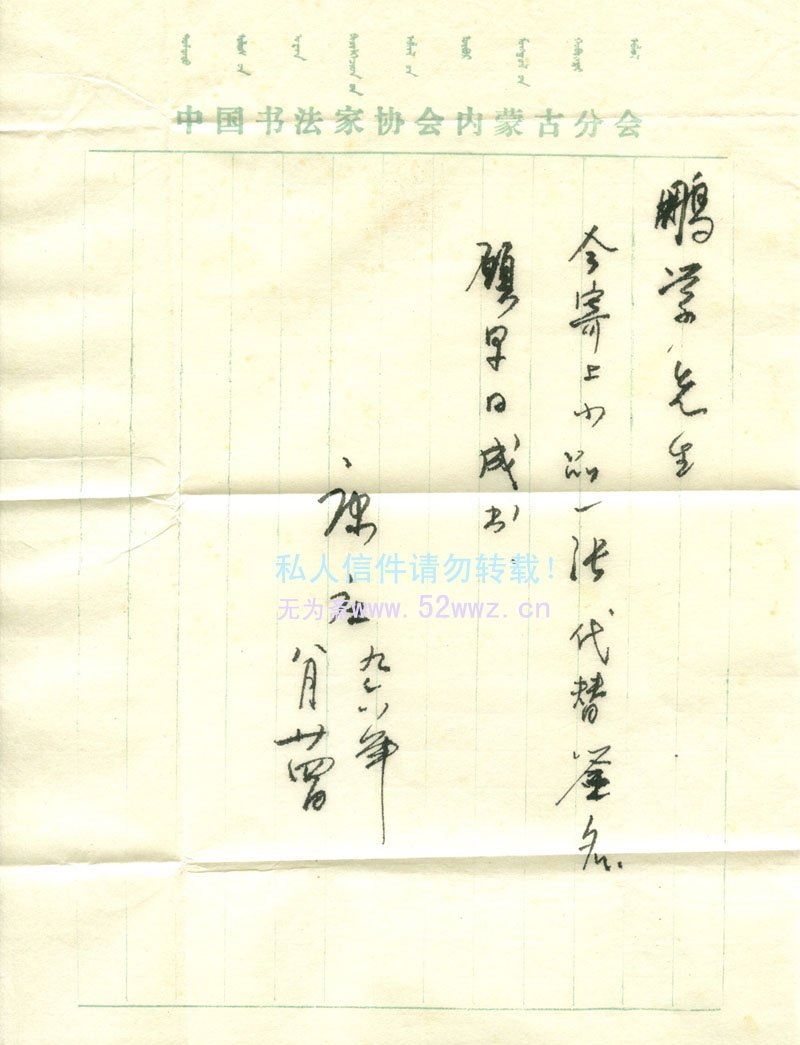 中国书法家协会内蒙古分会
鹏学先生
今寄上小品一张代替签名
愿早日成书
康庄
九六年
八月廿四日
私人信件请勿转载!
无为斋www.52wwz.cn